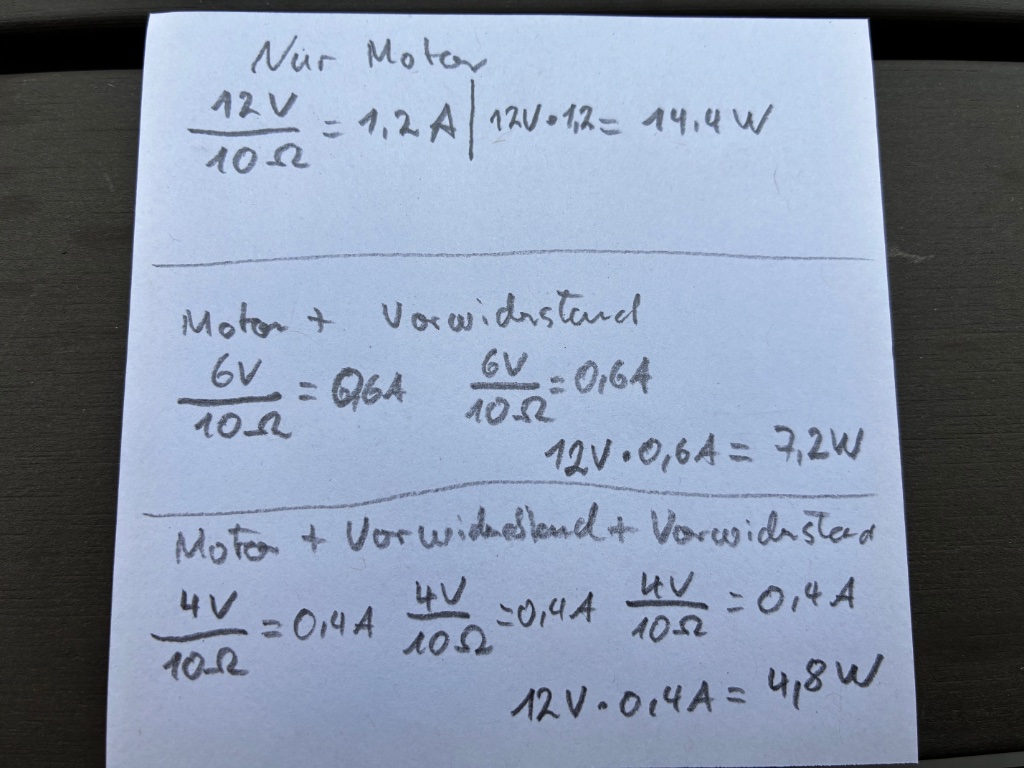 Nur Motor
12V / 10Ω = 1,2A | 12V·1,2= 14,4W
Motor + Vorwiderstand
6V / 10Ω = 0,6A 6V / 10Ω = 0,6A
12V·0,6A = 7,2W
Motor + Vorwiderstand + Vorwiderstand
4V / 10Ω = 0,4A 4V / 10Ω = 0,4A 4V / 10Ω = 0,4A
12V·0,4A = 4,8W